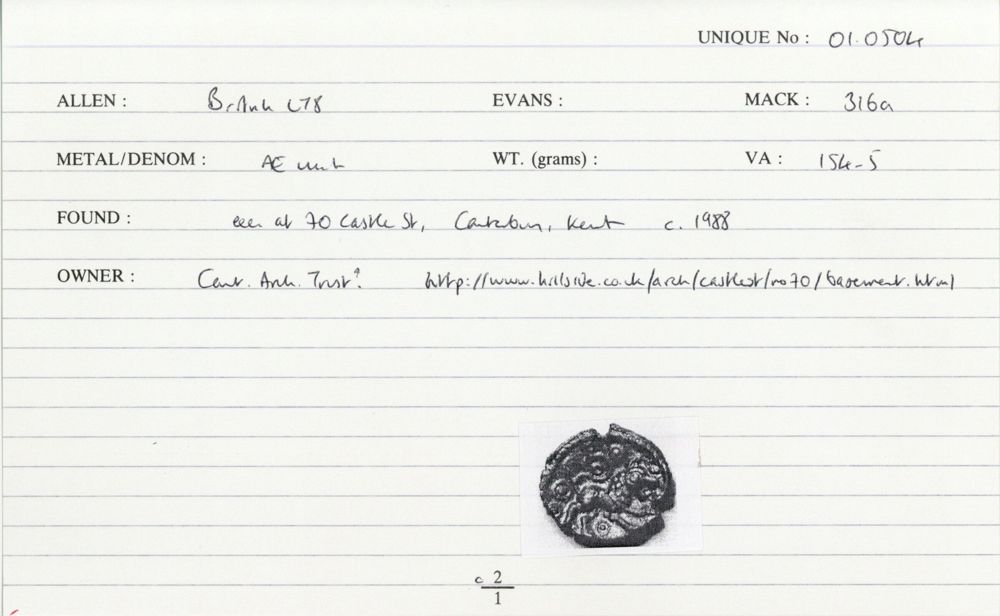 UNIQUE No : 01.0504
ALLEN : British LX8 EVANS : MACK : 316a
METAL/DENOM : AE unit WT. (grams) : VA : 154-5
FOUND : exc. at 70 Castle St, Canterbury, Kent c. 1988
OWNER : Cant. Arch. Trust? http://www.hillside.co.uk/arch/castlest/no70/basement.html
c 2
1